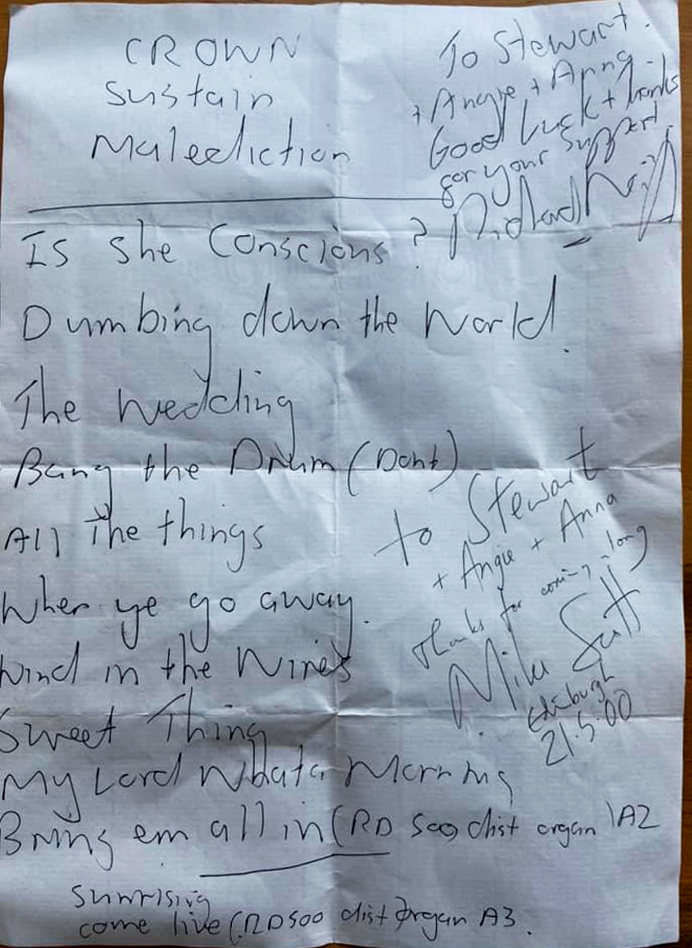 CROWN
Sustain
Malediction
To Stewart.
+ Angie + Anna
Good luck + thanks
for your support.
Richard
Is she Conscious ?
Dumbing down the World.
The Wedding
Bang the Drum (Dont)
All The things
When ye go away.
Wind in the Wires
Sweet Thing
My Lord Whata Morning
Bring em all in (RD 500 dist organ) A2
to Stewart
+ Angie + Anna
Thanks for coming along
Mike Scott
Edinburgh
21.5.00
Sunrising
come live (RD500 dist organ A3.